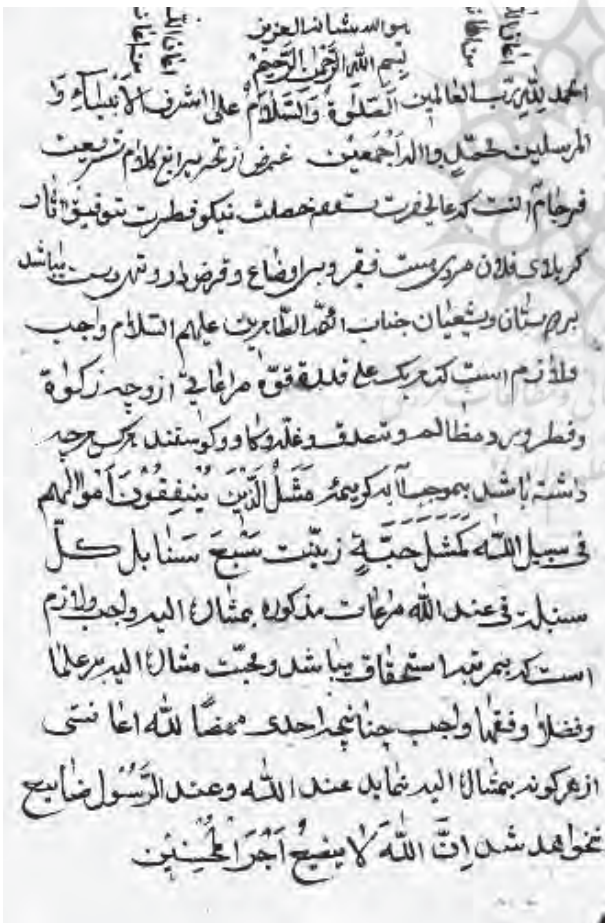 هو الله سبحانه العزیز
بسم الله الرحمن الرحیم
الحمد لله رب العالمین الصلوة والسلام علی اشرف الانبیاء و
المرسلین محمد واله اجمعین غرض از تحریر این کلام شریعت
فرجام آنست که عالیحضرت ستوده خصلت نیکو فطرت توفیق آثار
کربلای فلان مردی ست فقیر و اوضاع و قرض دار و تهی دست میباشد
بر دوستان و شیعیان جناب ائمة الطاهرین علیهم السلام واجب
و لازم است که هر یک علی قدر قوة مراعاتی از وجه زکوة
و فطره و رد مظالم و تصدق و غله و کاو و کوسفند هر کس هر چه
داشته باشد بموجب آیه کریمه مثل الذین ینفقون اموالهم
فی سبیل الله کمثل حبة زبنت سبع سنابل کل
سنبلة فی عند الله مرعات مذکوره بمشار الیه واجب و لازم
است که بمرتبه استحقاق میباشد و محبت مشار الیه بر علما
و فضلا و فقها واجب چنانچه احدی محضا لله اعانتی
از هر کونه بمشار الیه نماید عند الله و عند الرسول ضایع
نخواهد شد ان الله لا یضیع اجر المحسنین